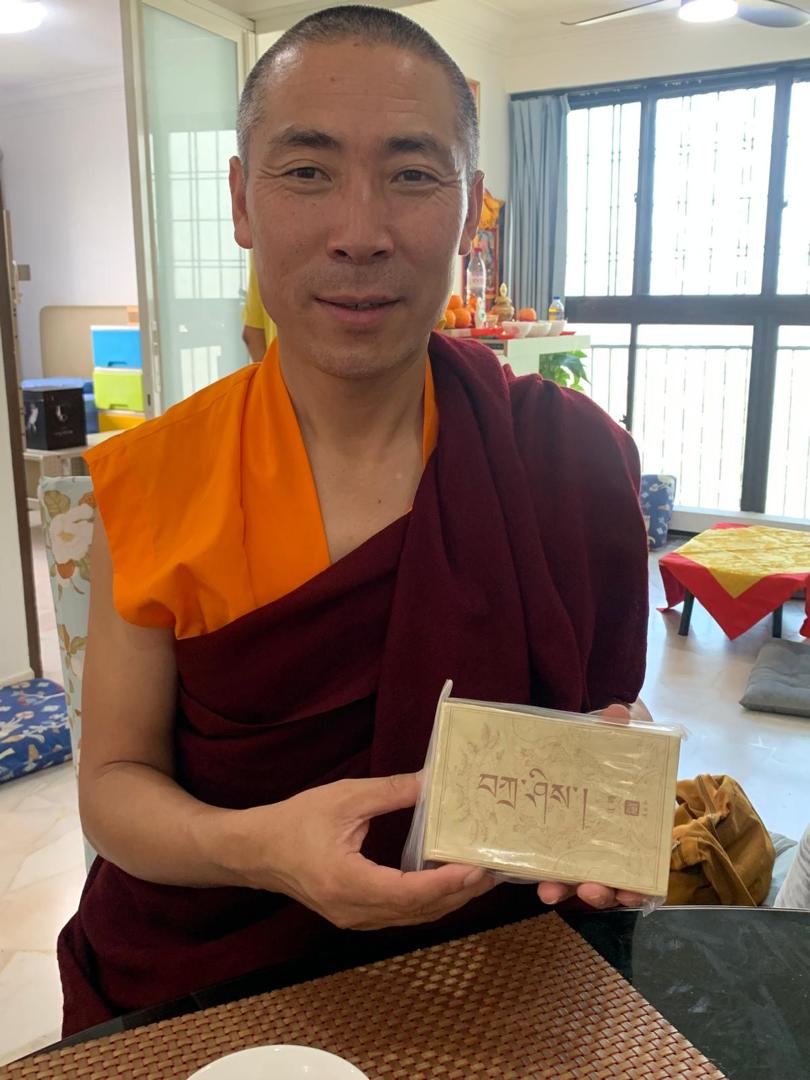 བཀྲ་ཤིས།